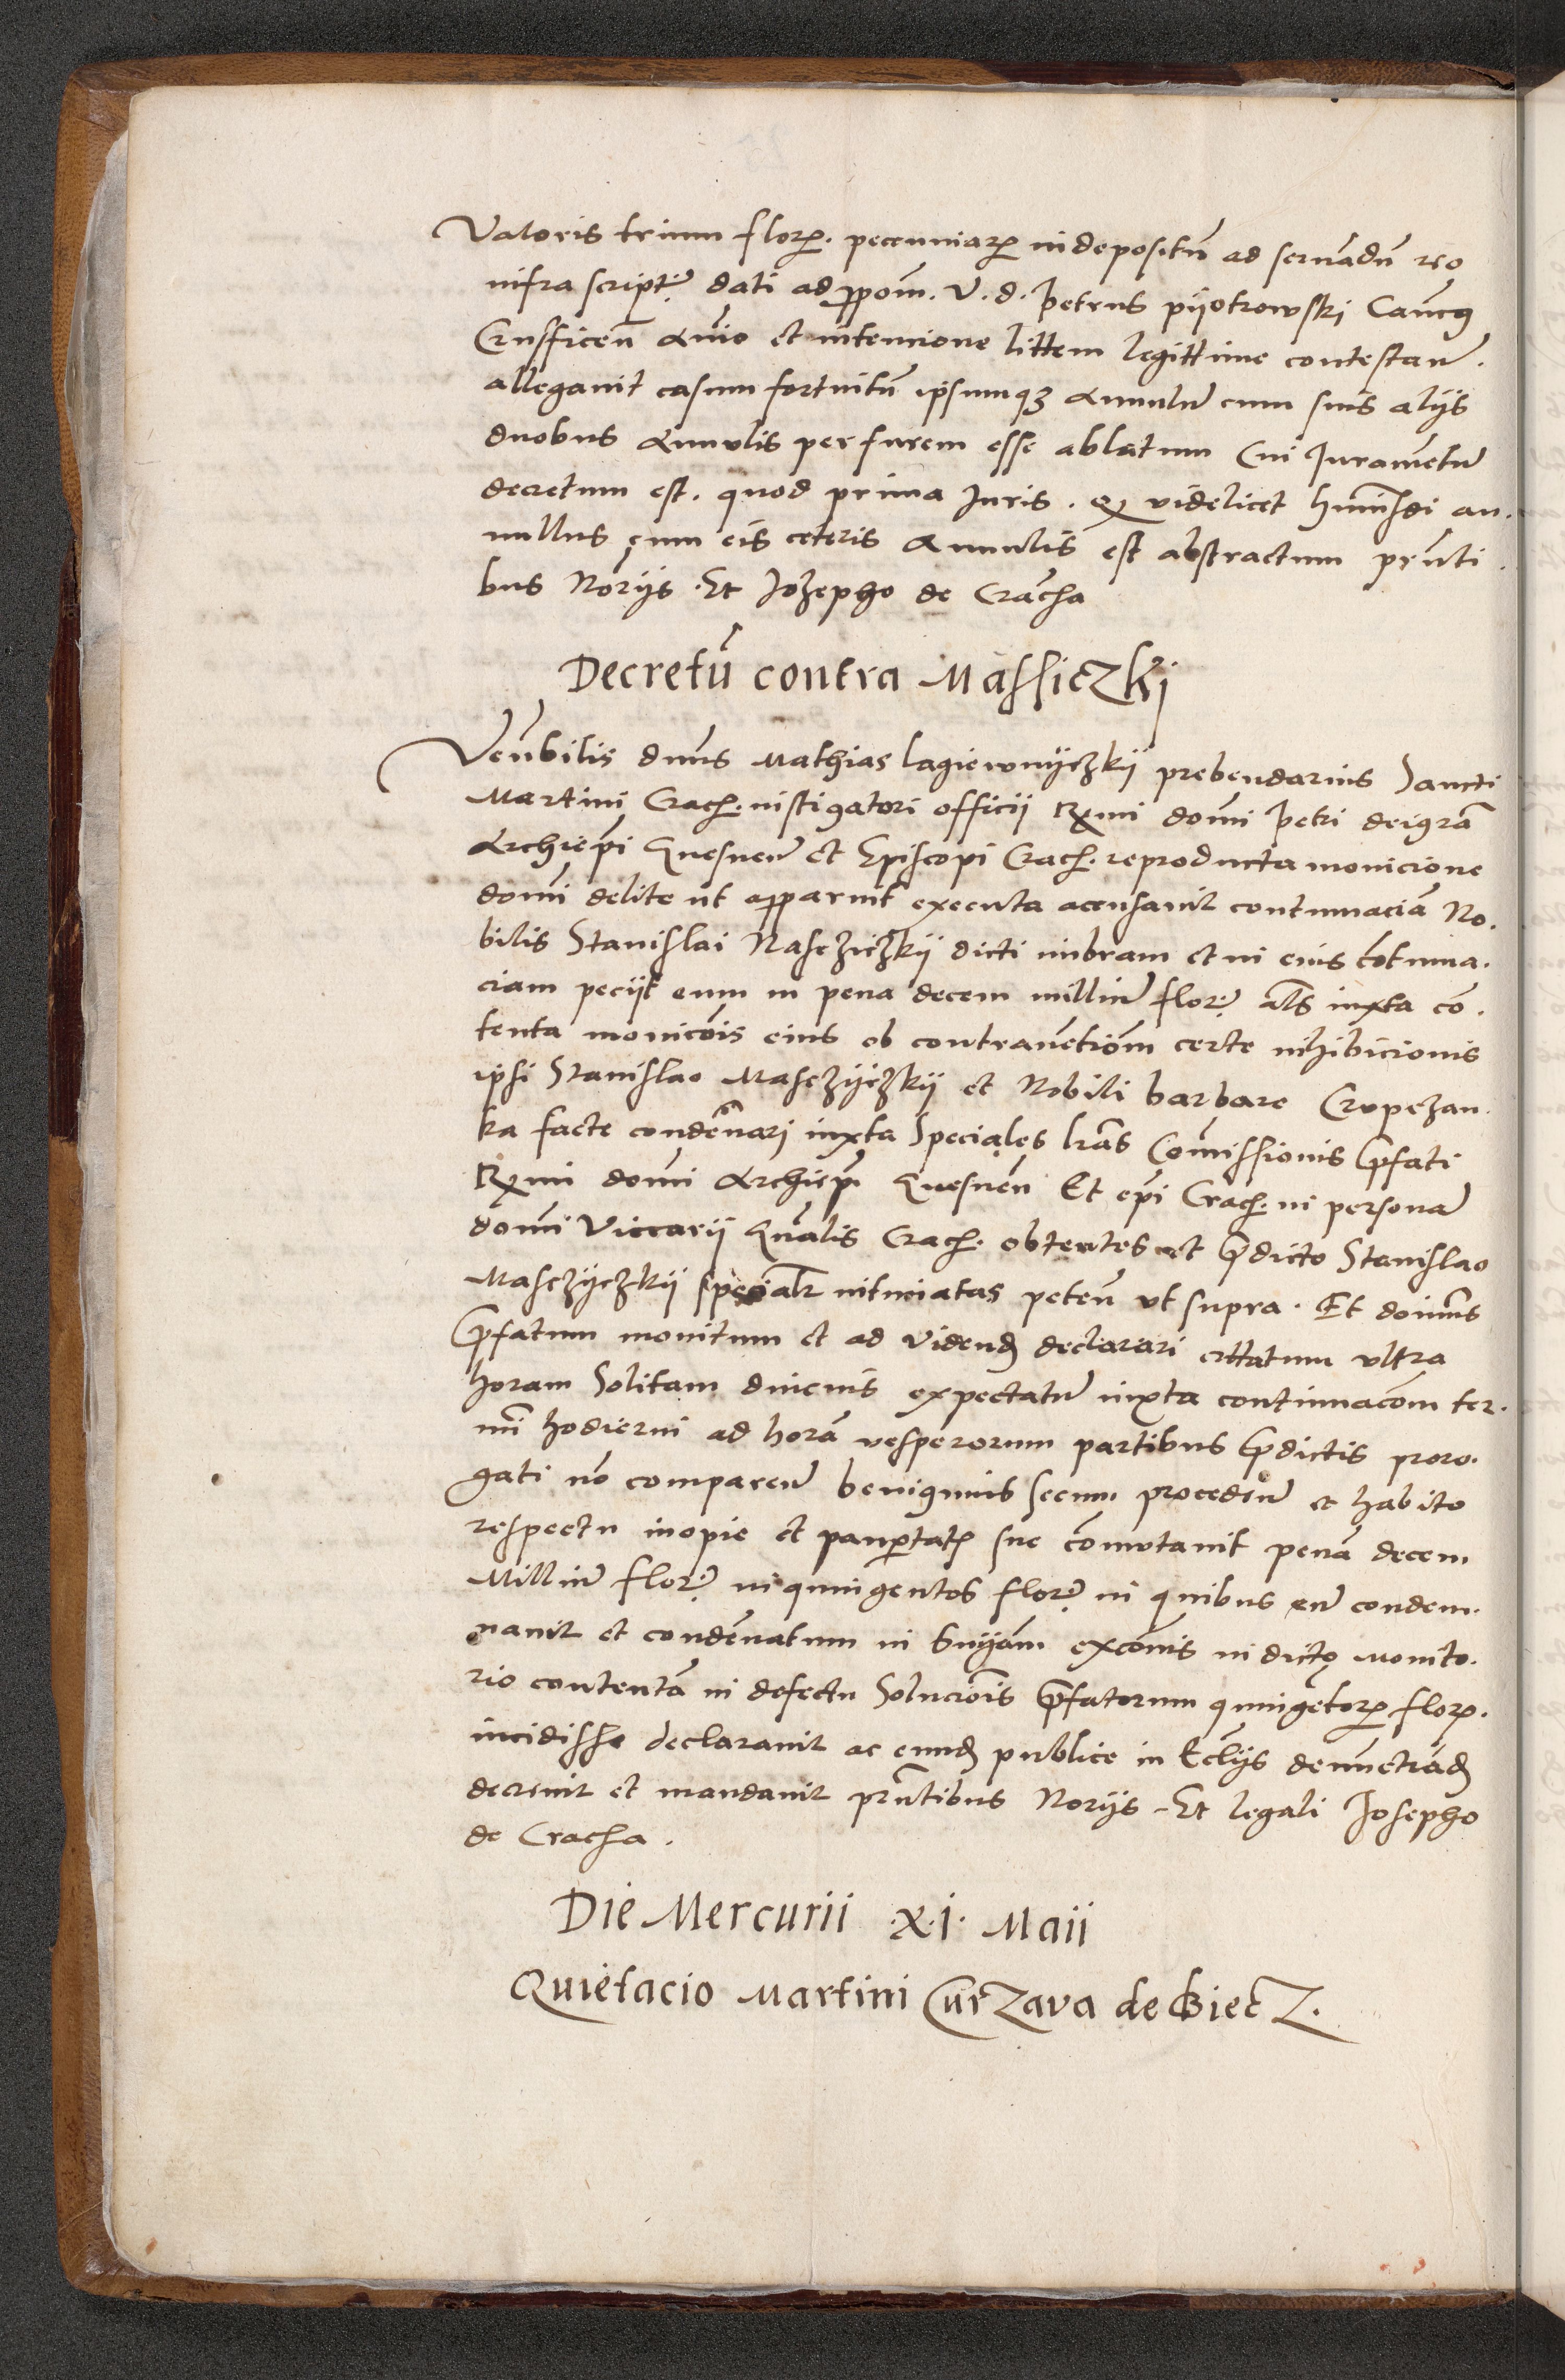 Valoris trium florꝫ. pecuniarꝫ in depositū ad seruādū reo
infra scriptꝫ dati ad ꝓpoīm. V. d. Petrus pyotrowski Canōcꝯ
Crusficeñ aīo et intencione littem legittime contestañ.
allegauit casum fortuitū ipsumqꝫ annulū cum suis alijs
duobus Annulis per furem esse ablatum Cui Iuramētū
decretum est. quod prima Iuris. qꝫ videlicet hmōi an.
nullus cum eis ceteris Annulis est abstractum prñti.
bus Norijs. Et Jozepho de Cracħa
Decretū contra Massiczki
Veñbilis dñus Mathias lagiewnyczkij prebendarius Sancti
Martini Crach. instigatori officii Rxmi domī Petri dei grā
Archiepī Gnesneñ et Episcopi Crach. reproducta monicione
domī delite ut apparuit executa accusauit contumaciā No.
bilis Stanislai Nasczyczkij dicti imbram et in eius cōtuma.
ciam pecijt eum in pena decem milliū florꝫ als iuxta cō.
tenta monicōis eius ob contrauētiōm certe inhibicionis
ipsi Stanislao Masczyczkij et Nobili barbare Cropczan.
ka facte condēnari iuxta Speciales lrās Comīssionis p̄fati
Rxmi domī Archiepī Gnesneñ Et epī Crach. in personā
domī Viccarii Gñalis Crach. obtentes et p̄dicto Stanislao
Masczyczkij specialr intimatas peteñ vt supra. Et domīus
p̄fatum monitum et ad Videndꝫ declarari cittatum vltra
horam Solitam diucius expectatū iuxta continuacōm ter.
mī hodierni ad horā vesperorum partibus p̄dictis proro.
gati nō compareñ benignius secum procedeñ et habito
respectu inopie et paupertatꝫ sue cōmutauit penā decem
Milliū florꝫ in quingentos florꝫ in quibus eū condem.
nauit et condēnatum in snijām excōmis in dicto monito.
rio contentā in defectu Solucīois p̄fatorum quingētorꝫ florꝫ.
incidisse declarauit ac eundꝫ publice in Ecclijs denūctiādꝫ
decreuit et mandauit prñtibus Norijs. Et legali Josepho
de Cracħa.
Die Mercurii .x.i. Maii
Quietacio Martini Curzava de Biecz.